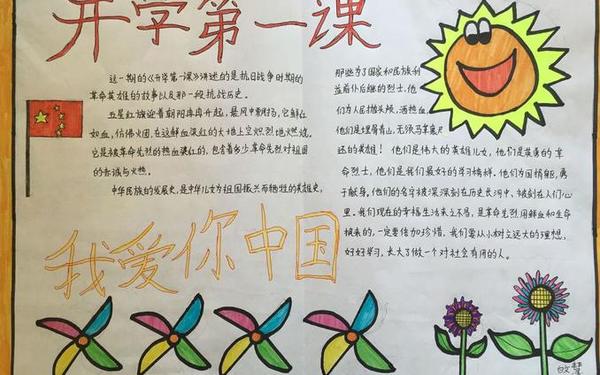 开学第一课
这一期的《开学第一课》讲述的是抗日战争时期的
革命英雄的故事以及那一段抗战历史。
五星红旗迎着朝阳冉冉升起,
如血,仿佛火团,在这鲜血染红的大地上空炽烈地燃烧。
它是被革命先烈的热血染红的,包含着多少革命先烈对祖国
的赤诚与火热。
中华民族的发展史,是中华儿女为祖国振兴而牺牲的英雄史,
我爱你中国
那些为了国家和民族利
益前仆后继的烈士,他
们为人民抛头颅,洒热血,
他们是埋骨青山,无须马革裹尸
还的英雄!他们是伟大的英雄儿女,他们是英勇的革
命烈士,他们是我们最好的学习榜样,他们为国捐躯,勇
于献身。他们的名字被深深刻在历史长河中、被刻在人们心
里。我们现在的幸福生活来之不易,是革命先烈用鲜血和生命
换来的,一定要倍加珍惜。我们要从小树立远大的理想,
好好学习,长大了做一个对社会有用的人。